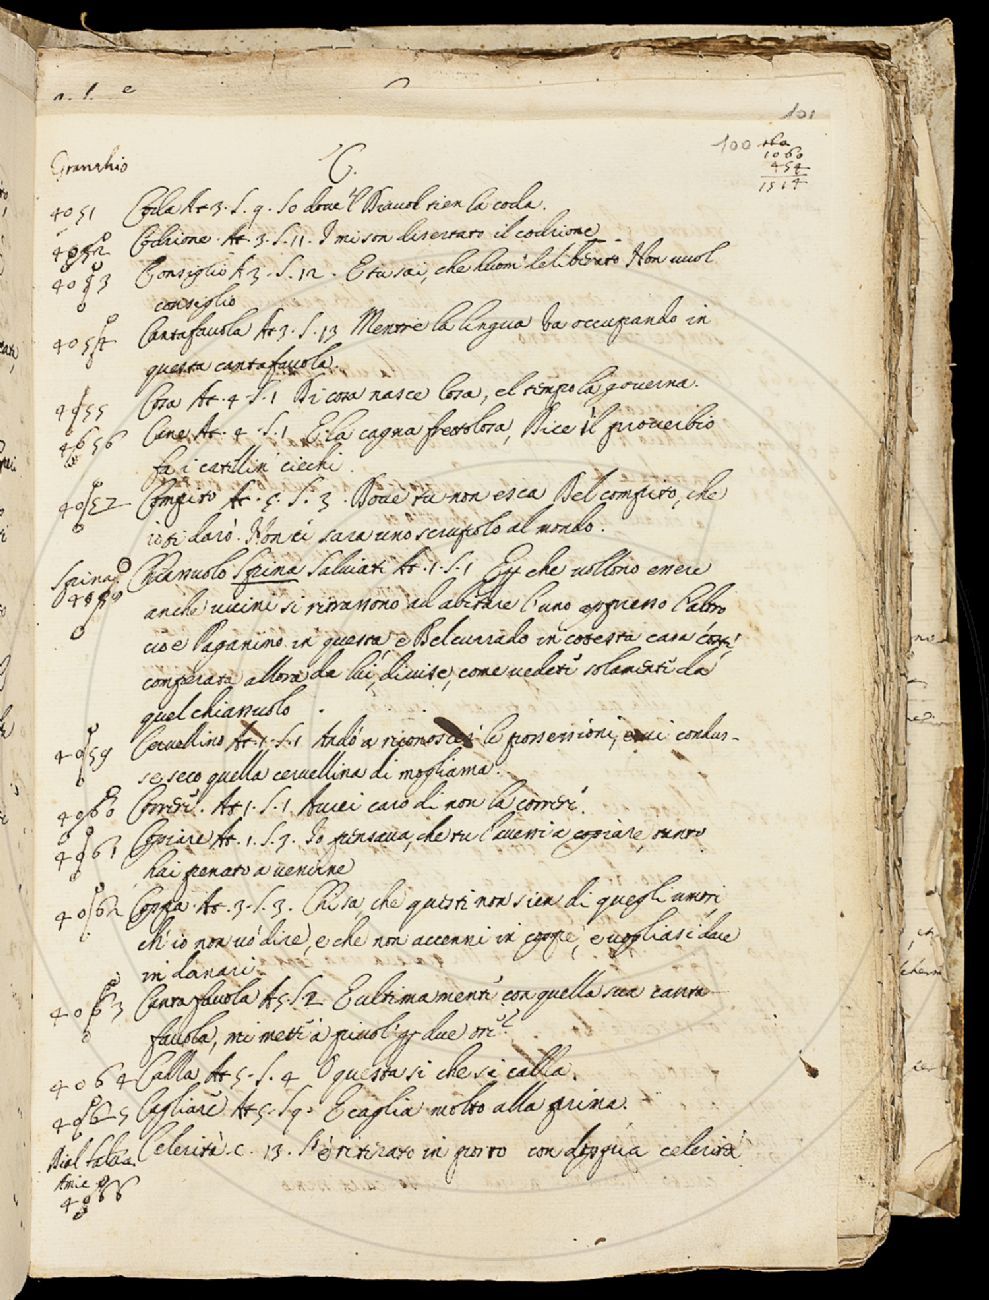 101
100
1060
454
1514
Granchio
C.
4051 Coda At 3. S. 9. So dove 'l Diavol tien la coda.
4052 Codrione. At. 3. S. 11. I mi son disertato il codrione
4053 Consiglio At 3. S. 12. E tu sai, che huom' deliberato Non vuol
consiglio
4054 Cantafavola At 3. S. 13 Mentre la lingua va occupando in
questa cantafavola.
4055 Cosa At. 4. S. 1 Di cosa nasce Cosa, e'l tempo la governa.
4056 Cane At. 4. S. 1 E la cagna frettolosa, Dice il proverbio
fa i catellin' ciechi.
4057 Compito At. 5. S. 3. Dove tu non esca Del compito, che
io ti darò. Non ci sara uno scrupolo al mondo.
Spina 4058 Chiassuolo Spina Salviati At. 1. S. 1 E che vollono essere
anche vicini si tirarono ad abitare l'uno appresso l'altro
cioè Paganino in questa e Belcuirado in cotesta casa
comperata allora da lui, divise, come vedete solamente da
quel chiassuolo.
4059 Cervellino At. 1. S. 1 Andò a riconoscer le possessioni, e vi condus-
se seco quella cervellina di mogliama.
4060 Correre. At 1. S. 1. Avrei caro di non la correre.
4061 Copiare At. 1. S. 3. Io pensava, che tu l'avessi a copiare, tanto
hai penato a venirne
4062 Coppa At. 3. S. 3. Chi sa, che questi non sien di quegli umori
ch'io non vo' dire, e che non accenni in coppe, e vogliasi dare
in danari.
4063 Cantafavola At 5. S. 2. E ultimamente con quella sua canta-
favola, mi mette a piuol' per due ore
4064 Calla At 5. S. 4 O questa si che si calla.
4065 Cagliare At 5. S. 9. E caglia molto alla prima.
4066 Celerità c. 13. S'è ritirato in porto con doppia celerità